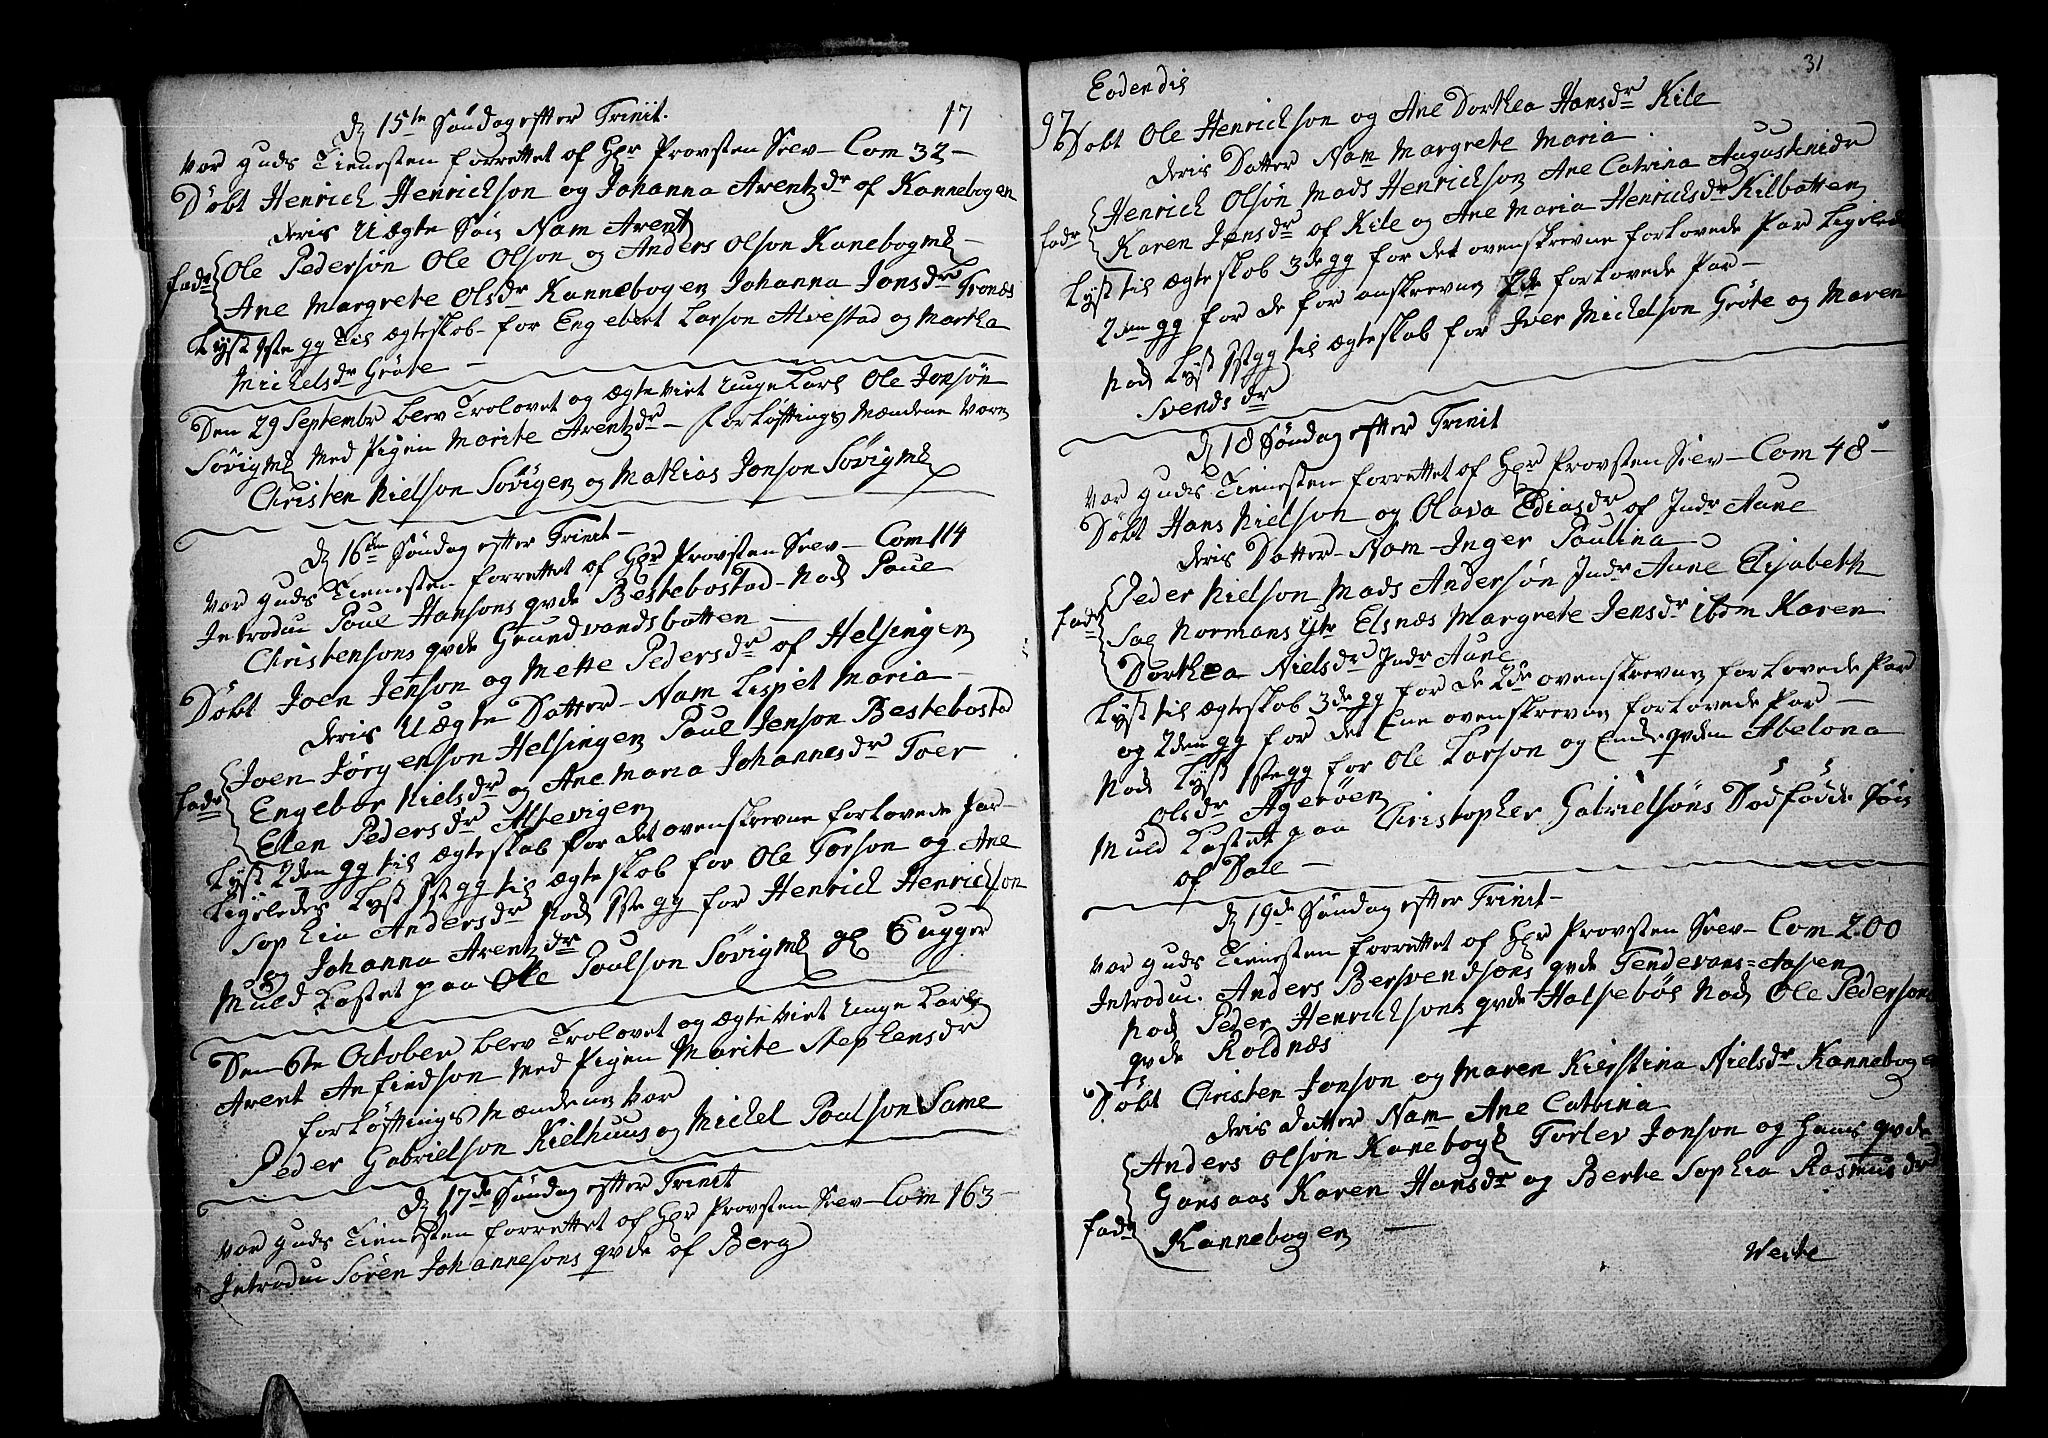 17
D 15te Søndag efter Trinit.
var guds Tienesten forrettet af Hr Provsten Selv – Com 32 –
Døbt Henrich Henrichson og Johanna Arentzdr af Kannebogen
deris Uægte Søn Nam Arent
fadr Ole Pedersøn Ole Olson og Anders Olson Kanebogen –
Ane Margrete Olsdr Kannebogen Johanna Jonsdr Tronæs
Lyst 1ste gg Til ægteskab – for Engebert Larson Alvestad og Martha
Michelsdr Grøte –
Den 29 Septembr blev Trolovet og ægteviet Unge Karl Ole Jonsøn
Sørvigen Med Pigen Marite Arentzdr – forløftings Mændene Vare
Christen Nielson Søvigen og Mathias Jonson Søvigen
D 16de Søndag efter Trinit –
var guds Tienesten forrettet af Hr Provsten Selv – Com 114
Introdu Poul Hansons qvde Bestebostad – Nok Poul
Christensons qvde Grundvandsbotten –
Døbt Joen Jenson og Mette Pedersdr af Helsingen
deris Uægte Datter – Nam Lispet Maria –
fadr Joen Jørgenson Helsingen Poul Jenson Bestebostad
Engebor Nielsdr og Ane Maria Johannesdr Toer
Elen Pedersdr Altevigen
Lyst 2den gg til ægteskab for det ovenskrevne forlovede Par –
Ligeledes Lyst 1st gg til ægteskab for Ole Torson og Ane
Sophia Andersdr Nok 1ste gg for Henrich Henrichson
og Johanna Arentzdr
Muld Kastet paa Ole Poulson Søvigen gl 6 uger
Den 6te October blev Trolovet og ægteviet Unge Karl
Arent Anfindson Med Pigen Marite Stephensdr
forløftings Mændene var
Peder Gabrielson Kielhuus og Michel Poulson Same
D 17de Søndag efter Trinit
var guds Tienesten forrettet af Hr Provsten Selv – Com 163 –
Introdu Søren Johannesons qvde af Berg
31
Eodendie
97 Døbt Ole Henrichson og Ane Dorthea Hansdr Kile
deris Datter Nam Margrete Maria
fadr Henrich Olsøn Mads Henrichson Ane Catrina Augustinidr
Karen Jensdr af Kile og Ane Maria Henrichsdr Kilbotten
Lyst til ægteskab 3de gg for det ovenskrevne forlovede Par Ligeledes
2den gg for de for anskrevne 2de forlovede Par –
Nok Lyst 1st gg til ægteskab for Iver Michelson Grøte og Maren
Svendsdr
D 18 Søndag efter Trinit
var guds Tienesten forrettet af Hr Provsten Selv – Com 48 –
Døbt Hans Nielson og Olava Ediasdr af Indr Aune
deris Datter – Nam – Inger Paulina
fadr Peder Nielson Mads Andersøn Indr Aune Elisabeth
Sal Normans Ytr Elsnæs Margrete Jensdr itom Karen
Dorthea Nielsdr Indr Aune
Lyst til ægteskab 3de gg for de 2de ovenskrevne forlovede Par
og 2den gg for det Ene ovenskrevne forlovede Par –
Nok Lyst 1ste gg for Ole Larson og Enke qvden Abelona
Olsdr Agerøen
Muld Kastet paa Christopher Gabrielsøns Dødfødde Søn
af Dale –
D 19de Søndag efter Trinit –
var guds Tienesten forrettet af Hr Provsten Selv – Com 200
Introdu. Anders Bersvendsons qvde Tendevans=Aasen
Nok Peder Henrichsons qvde Halsebøe Nok Ole Pedersons
qvde Roldnæs
Døbt Christen Jonson og Maren Kierstina Nielsdr Kannebogen
deris datter Nam Ane Catrina
fadr Anders Olsøn Kanebogen Torler Jonson og hans qvde
Gansaas Karen Hansdr og Berte Sophia Rasmusdr
Kannebogen –
Verte